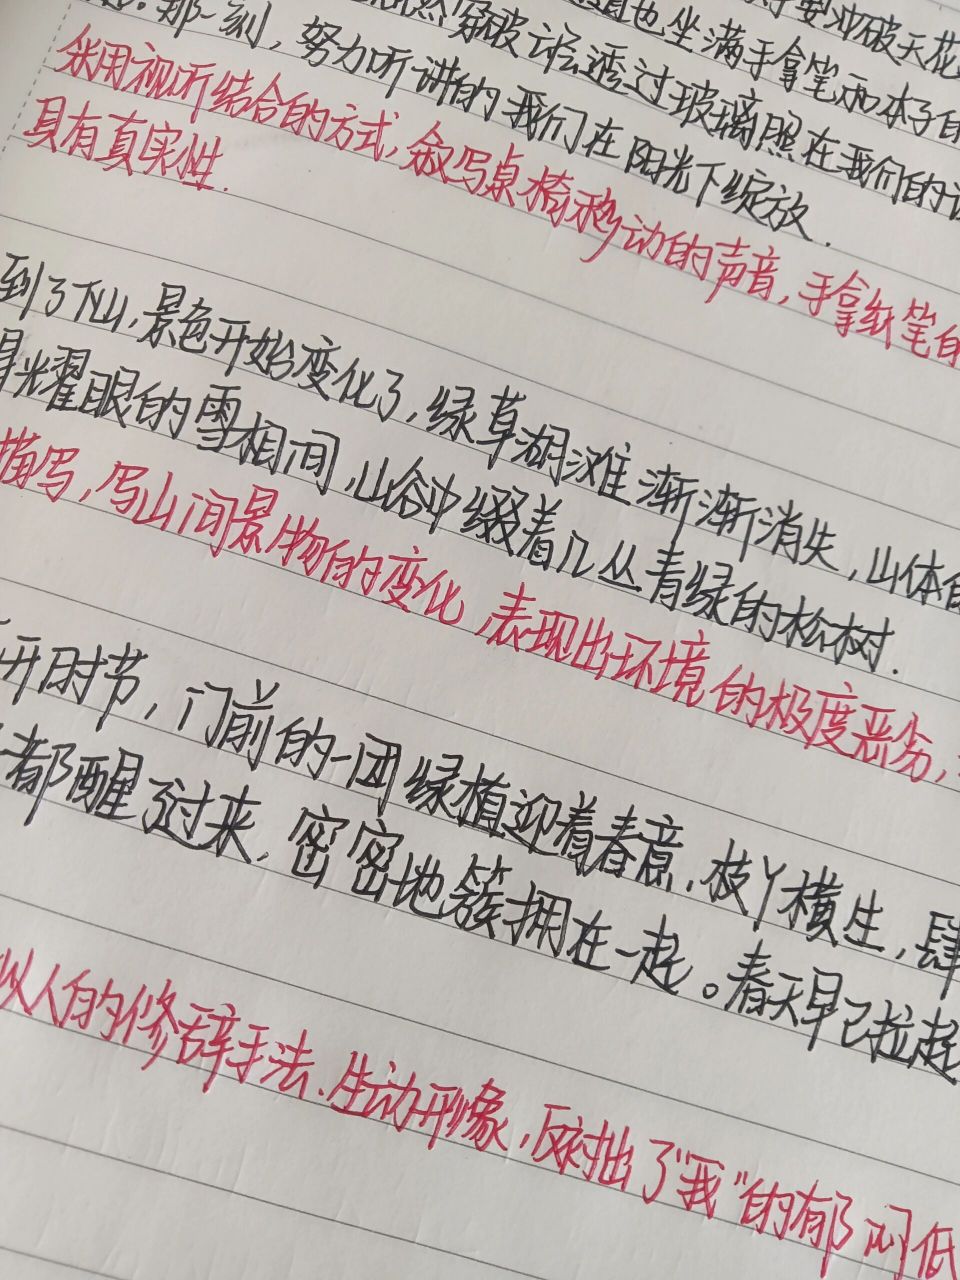 要冲破天花
道也坐满手拿笔和本子的
然穿破云层透过玻璃照在我们的
那一刻，努力听讲的我们在阳光下绽放.
采用视听结合的方式，叙写桌椅移动的声音，手拿纸笔的
具有真实性.
到了下山，景色开始变化了，绿草湖滩渐渐消失，山体的
光耀眼的雪相间，山谷中缀着几丛青绿的松树.
描写，写山间景物的变化，表现出环境的极度恶劣，
开时节，门前的一团绿植迎着春意，枝丫横生，肆
都醒了过来，密密地簇拥在一起。春天早已拉起
拟人的修辞手法、生动形象，反衬出了“我”的郁闷低